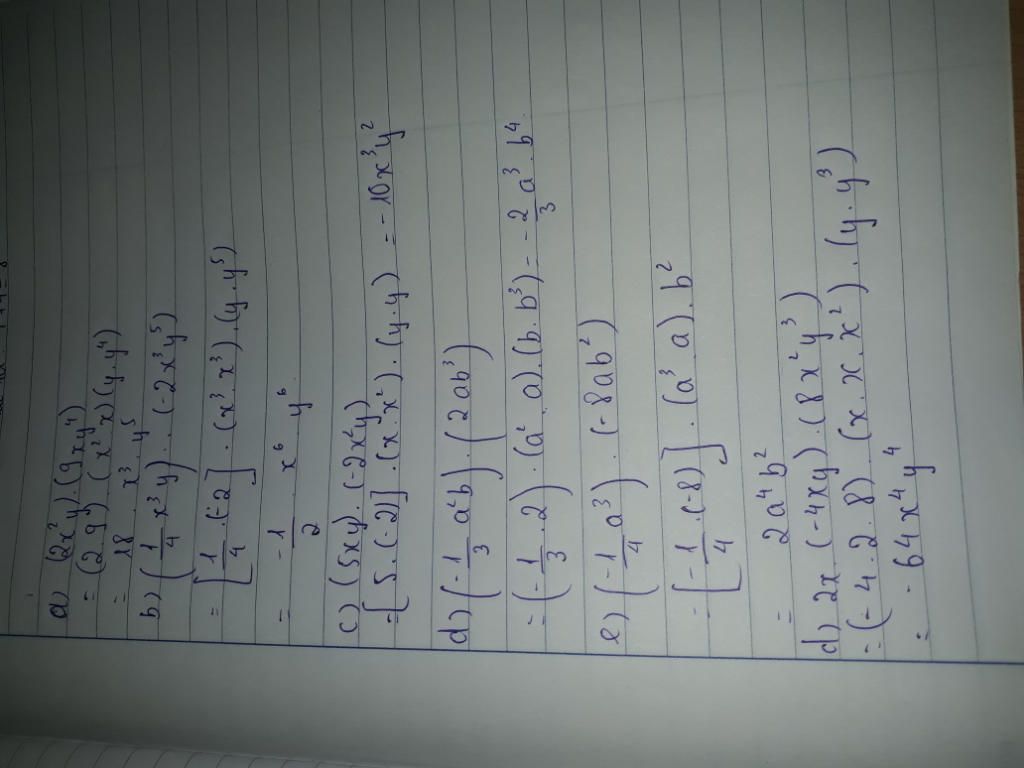 a) (2x²y).(9xy⁴)
= (2.9).(x².x)(y.y⁴)
= 18 . x³.y⁵
b) (1/4 x³y).(-2x³y⁵)
= [1/4.(-2)].(x³.x³).(y.y⁵)
= -1/2 . x⁶ . y⁶
c) (5xy).(-2x²y)
= [5.(-2)].(x.x²).(y.y) = -10x³y²
d) (-1/3 a²b).(2ab³)
= (-1/3.2).(a².a).(b.b³) - -2/3 a³.b⁴.
e) (-1/4 a³).(-8ab²)
= [-1/4.(-8)].(a³.a).b²
= 2a⁴b²
d) 2x.(-4xy).(8x²y³)
= (-4.2.8).(x.x.x²).(y.y³)
= -64x⁴y⁴